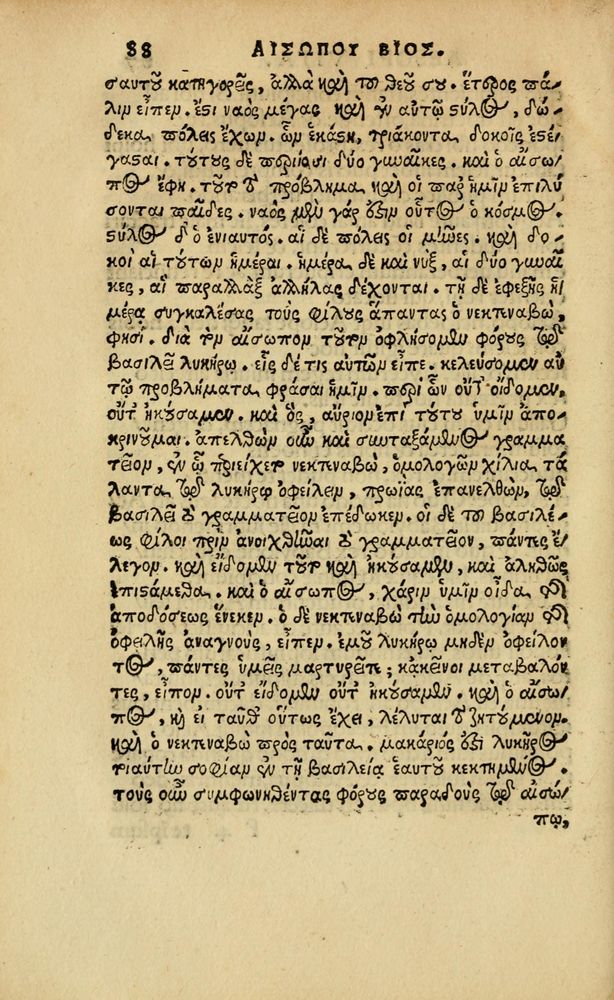 88 ΑΙΣΩΠΟΥ ΒΙΟΣ.
σαυτοῦ κατηγορεῖς, ἀλλὰ καὶ τοῦ θεοῦ σου. ἕτερος πά-
λιν εἶπεν. ἔστι ναὸς μέγας καὶ ἐν αὐτῷ στύλος, δώ-
δεκα πόλεις ἔχων. ὧν ἑκάστη, τριάκοντα δοκοῖς ἐστέ-
γασται. τούτους δὲ περιίασι δύο γυναῖκες. καὶ ὁ αἴσω-
πος ἔφη. τοῦτο τὸ πρόβλημα καὶ οἱ παρ' ἡμῖν ἐπιλύ
σονται παῖδες. ναὸς μὲν γάρ ἐστιν οὗτος ὁ κόσμος.
στύλος δὲ ὁ ἐνιαυτός. αἱ δὲ πόλεις οἱ μῆνες. καὶ δο-
κοὶ αἱ τούτων ἡμέραι. ἡμέρα δὲ καὶ νὺξ, αἱ δύο γυναῖ
κες, αἳ παραλλὰξ ἀλλήλας δέχονται. τῇ δὲ ἐφεξῆς ἡ
μέρᾳ συγκαλέσας τοὺς φίλους ἅπαντας ὁ νεκτεναβὼ,
φησί. διὰ τὸν αἴσωπον τοῦτον ὀφλήσομεν φόρους τῷ
βασιλεῖ λυκήρῳ. εἷς δέ τις αὐτῶν εἶπε. κελεύσομεν αὐ
τῷ προβλήματα φράσαι ἡμῖν. περὶ ὧν οὔτ' οἴδομεν,
οὔτ' ἠκούσαμεν. καὶ ὃς, αὔριον ἐπὶ τούτου ὑμῖν ἀπο-
κρινοῦμαι. ἀπελθὼν οὖν καὶ συνταξάμενος γραμμα
τεῖον, ἐν ᾧ περιείχετο νεκτεναβὼ, ὁμολογῶν χίλια τά
λαντα τῷ λυκήρῳ ὀφείλειν, πρωΐας ἐπανελθὼν, τῷ
βασιλεῖ τὸ γραμματεῖον ἐπέδωκεν. οἱ δὲ τοῦ βασιλέ-
ως φίλοι πρὶν ἀνοιχθῆναι τὸ γραμματεῖον, πάντες ἔ-
λεγον. καὶ εἴδομεν τοῦτο καὶ ἠκούσαμεν, καὶ ἀληθῶς
ἐπιστάμεθα. καὶ ὁ αἴσωπος, χάριν ὑμῖν οἶδα τῆς
ἀποδόσεως ἕνεκεν. ὁ δὲ νεκτεναβὼ τὴν ὁμολογίαν τῆς
ὀφειλῆς ἀναγνοὺς, εἶπεν. ἐμοῦ λυκήρῳ μηδὲν ὀφείλον
τος, πάντες ὑμεῖς μαρτυρεῖτε; κἀκεῖνοι μεταβαλόν-
τες, εἶπον. οὔτ' εἴδομεν οὔτ' ἠκούσαμεν. καὶ ὁ αἴσω-
πος, καὶ εἰ ταῦθ' οὕτως ἔχει, λέλυται τὸ ζητούμενον.
καὶ ὁ νεκτεναβὼ πρὸς ταῦτα. μακάριός ἐστι λυκῆρος
τοιαύτην σοφίαν ἐν τῇ βασιλείᾳ ἑαυτοῦ κεκτημένος.
τοὺς οὖν συμφωνηθέντας φόρους παραδοὺς τῷ αἰσώ-
πῳ,